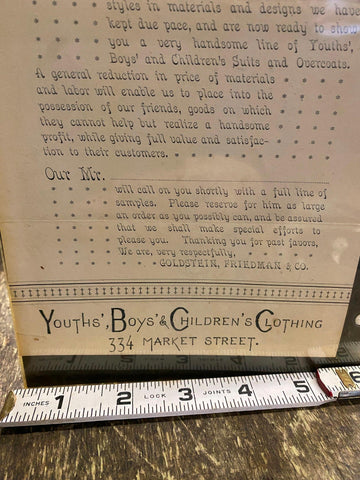 styles in materials and designs we have
kept due pace, and are now ready to show
you a very handsome line of Youths',
Boys' and Children's Suits and Overcoats.
A general reduction in price of materials
and labor will enable us to place into the
possession of our friends, goods on which
they cannot help but realize a handsome
profit, while giving full value and satisfac-
tion to their customers.
Our Mr.
will call on you shortly with a full line of
samples. Please reserve for him as large
an order as you possibly can, and be assured
that we shall make special efforts to
please you. Thanking you for past favors,
We are, very respectfully,
GOLDSTEIN, FRIEDMAN & CO.
YOUTHS', BOYS' & CHILDREN'S CLOTHING
334 MARKET STREET.
1 2 LOCK 3 JOINTS 4 5